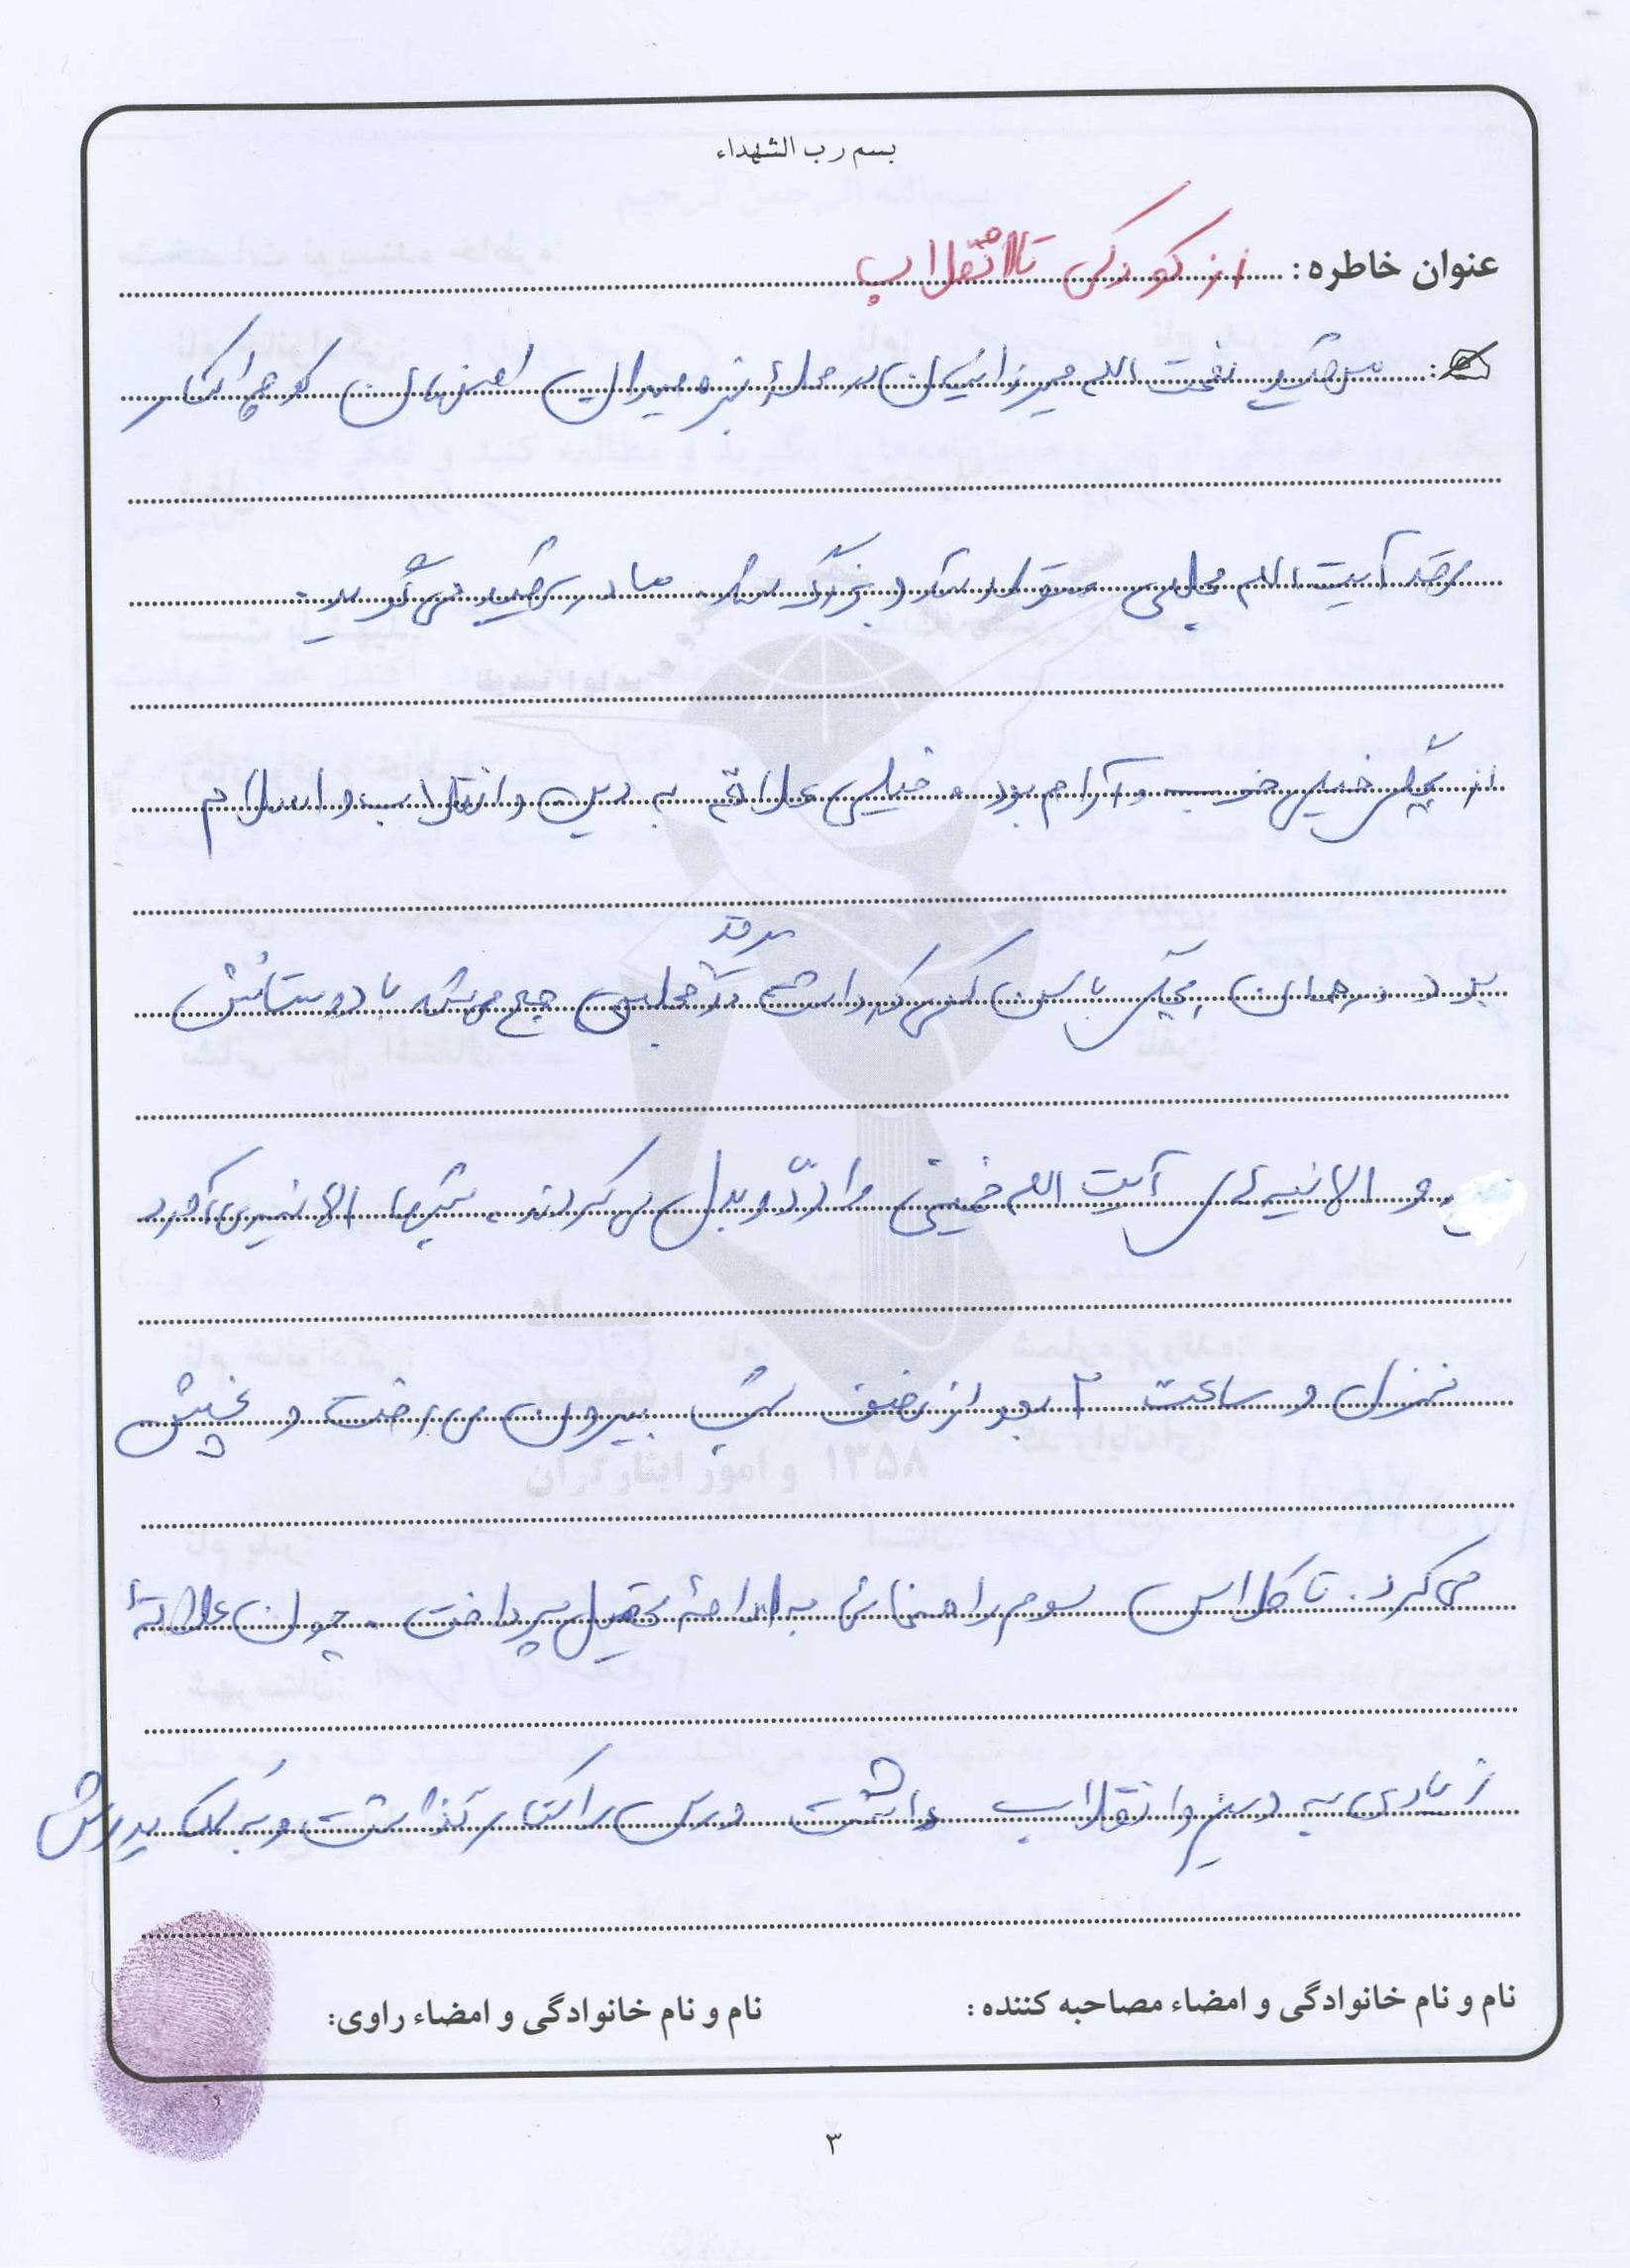 بسم رب الشهداء
عنوان خاطره: از کودکی تا انقلاب
شهید نعمت الله میرزائیان در محلهٔ سبزه میدان اصفهان کوچه کنار
مرقد آیت الله مجلسی متولد شد و بزرگ شد. مادر شهید می گوید.
از بچگی خیلی خوب و آرام بود و خیلی علاقه به دین و انقلاب و اسلام
بود در همان بچگی با سن کمی که داشت در مرقد مجلسی جمع می شد با دوستانش
و الانیه های آیت الله خمینی را ردّ و بدل می کردند، شبها الانیه می آورد
منزل و ساعت ۲ بعد از نصف شب بیرون می رفت و پخش
می کرد. تا کلاس سوم راهنمائی به ادامهٔ تحصیل پرداخت. چون علاقهٔ
زیادی به دین و انقلاب داشت درس را کنار گذاشت و به کمک پدرش
نام و نام خانوادگی و امضاء مصاحبه کننده: نام و نام خانوادگی و امضاء راوی:
۳